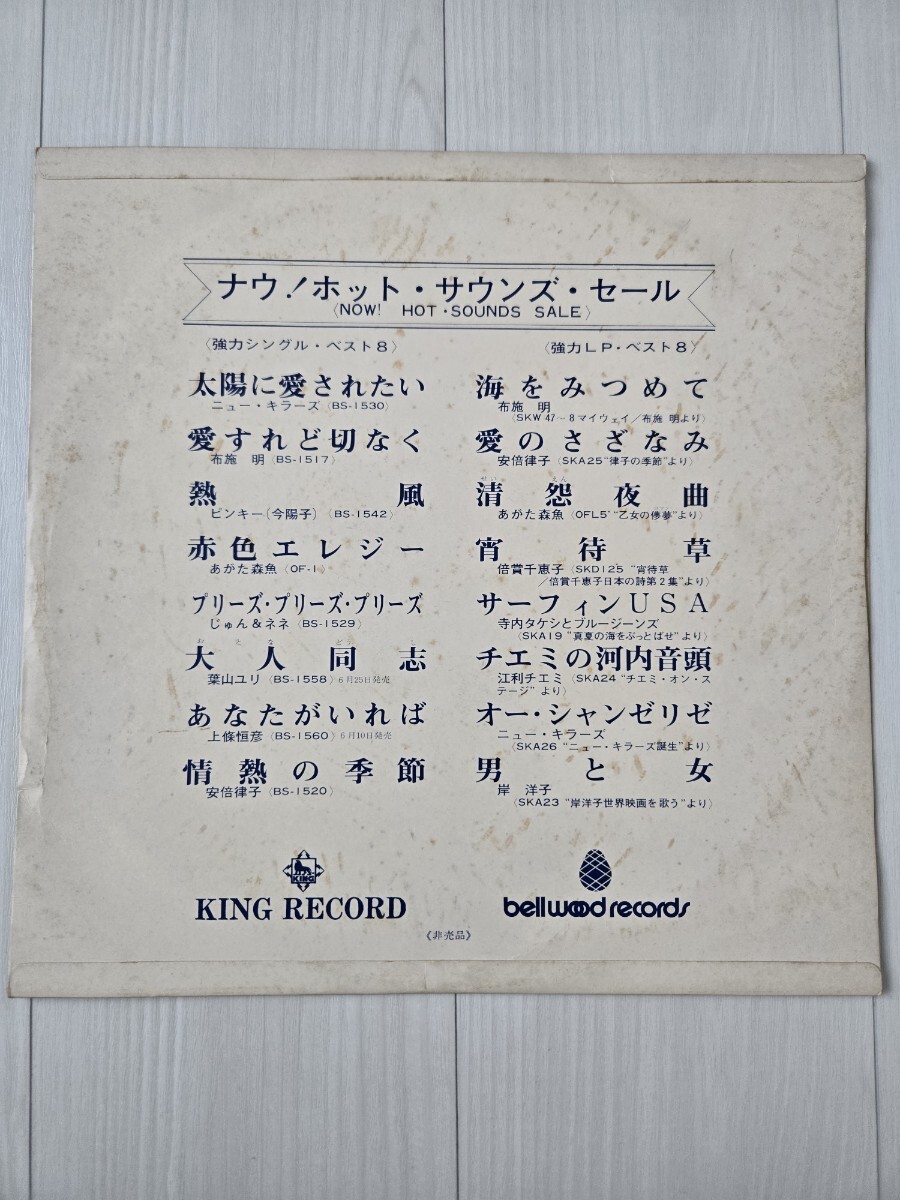 ナウ!ホット・サウンズ・セール
〈NOW! HOT・SOUNDS SALE〉
〈強力シングル・ベスト8〉
太陽に愛されたい
ニュー・キラーズ〈BS-1530〉
愛すれど切なく
布施 明〈BS-1517〉
熱風
ピンキー(今陽子)〈BS-1542〉
赤色エレジー
あがた森魚〈OF-1〉
プリーズ・プリーズ・プリーズ
じゅん&ネネ〈BS-1529〉
大人同志
葉山ユリ〈BS-1558〉6月25日発売
あなたがいれば
上條恒彦〈BS-1560〉6月10日発売
情熱の季節
安倍律子〈BS-1520〉
〈強力LP・ベスト8〉
海をみつめて
布施 明
〈SKW 47〜8マイウェイ/布施 明より〉
愛のさざなみ
安倍律子〈SKA25“律子の季節”より〉
清怨夜曲
あがた森魚〈OFL5“乙女の儚夢”より〉
宵待草
倍賞千恵子〈SKD125“宵待草
/倍賞千恵子日本の詩第2集”より〉
サーフィンUSA
寺内タケシとブルージーンズ
〈SKA19“真夏の海をぶっとばせ”より〉
チエミの河内音頭
江利チエミ〈SKA24“チエミ・オン・ス
テージ”より〉
オー・シャンゼリゼ
ニュー・キラーズ
〈SKA26“ニュー・キラーズ誕生”より〉
男と女
岸 洋子
〈SKA23“岸洋子世界映画を歌う”より〉
KING
KING RECORD
bellwood records
《非売品》